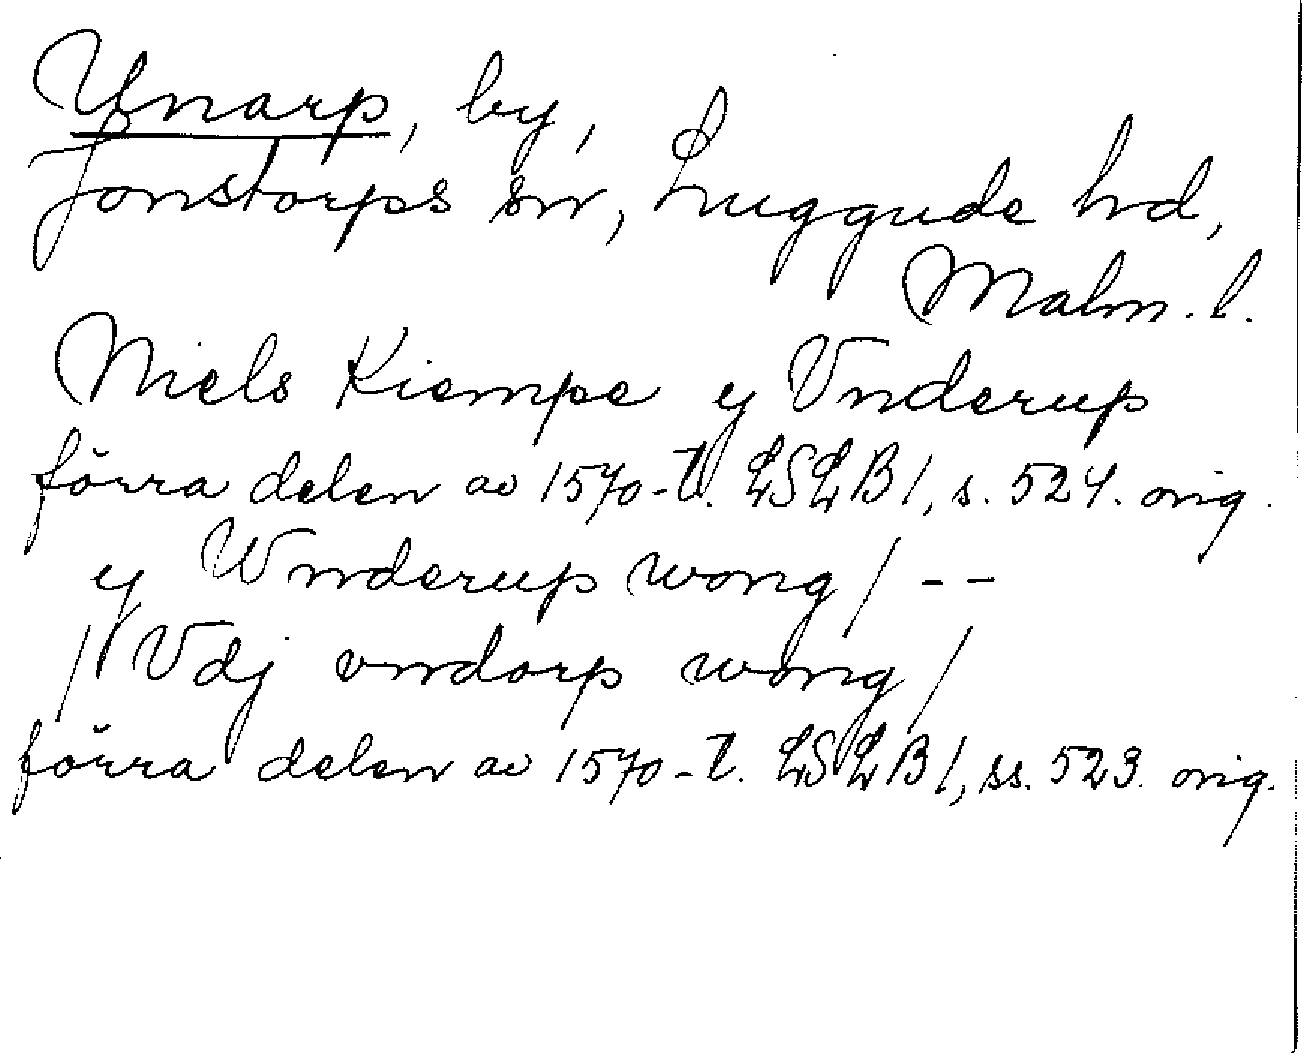 Unarp, by,
Jonstorps sn, Luggude hd,
Malm. l.
Niels Kiempe y Vnderup
förra delen av 1570-t. LSLB 1, s. 524. orig.
y Wnderup wong / - -
/ Vdj vndorp wong /
förra delen av 1570-t. LSLB 1, ss. 523. orig.